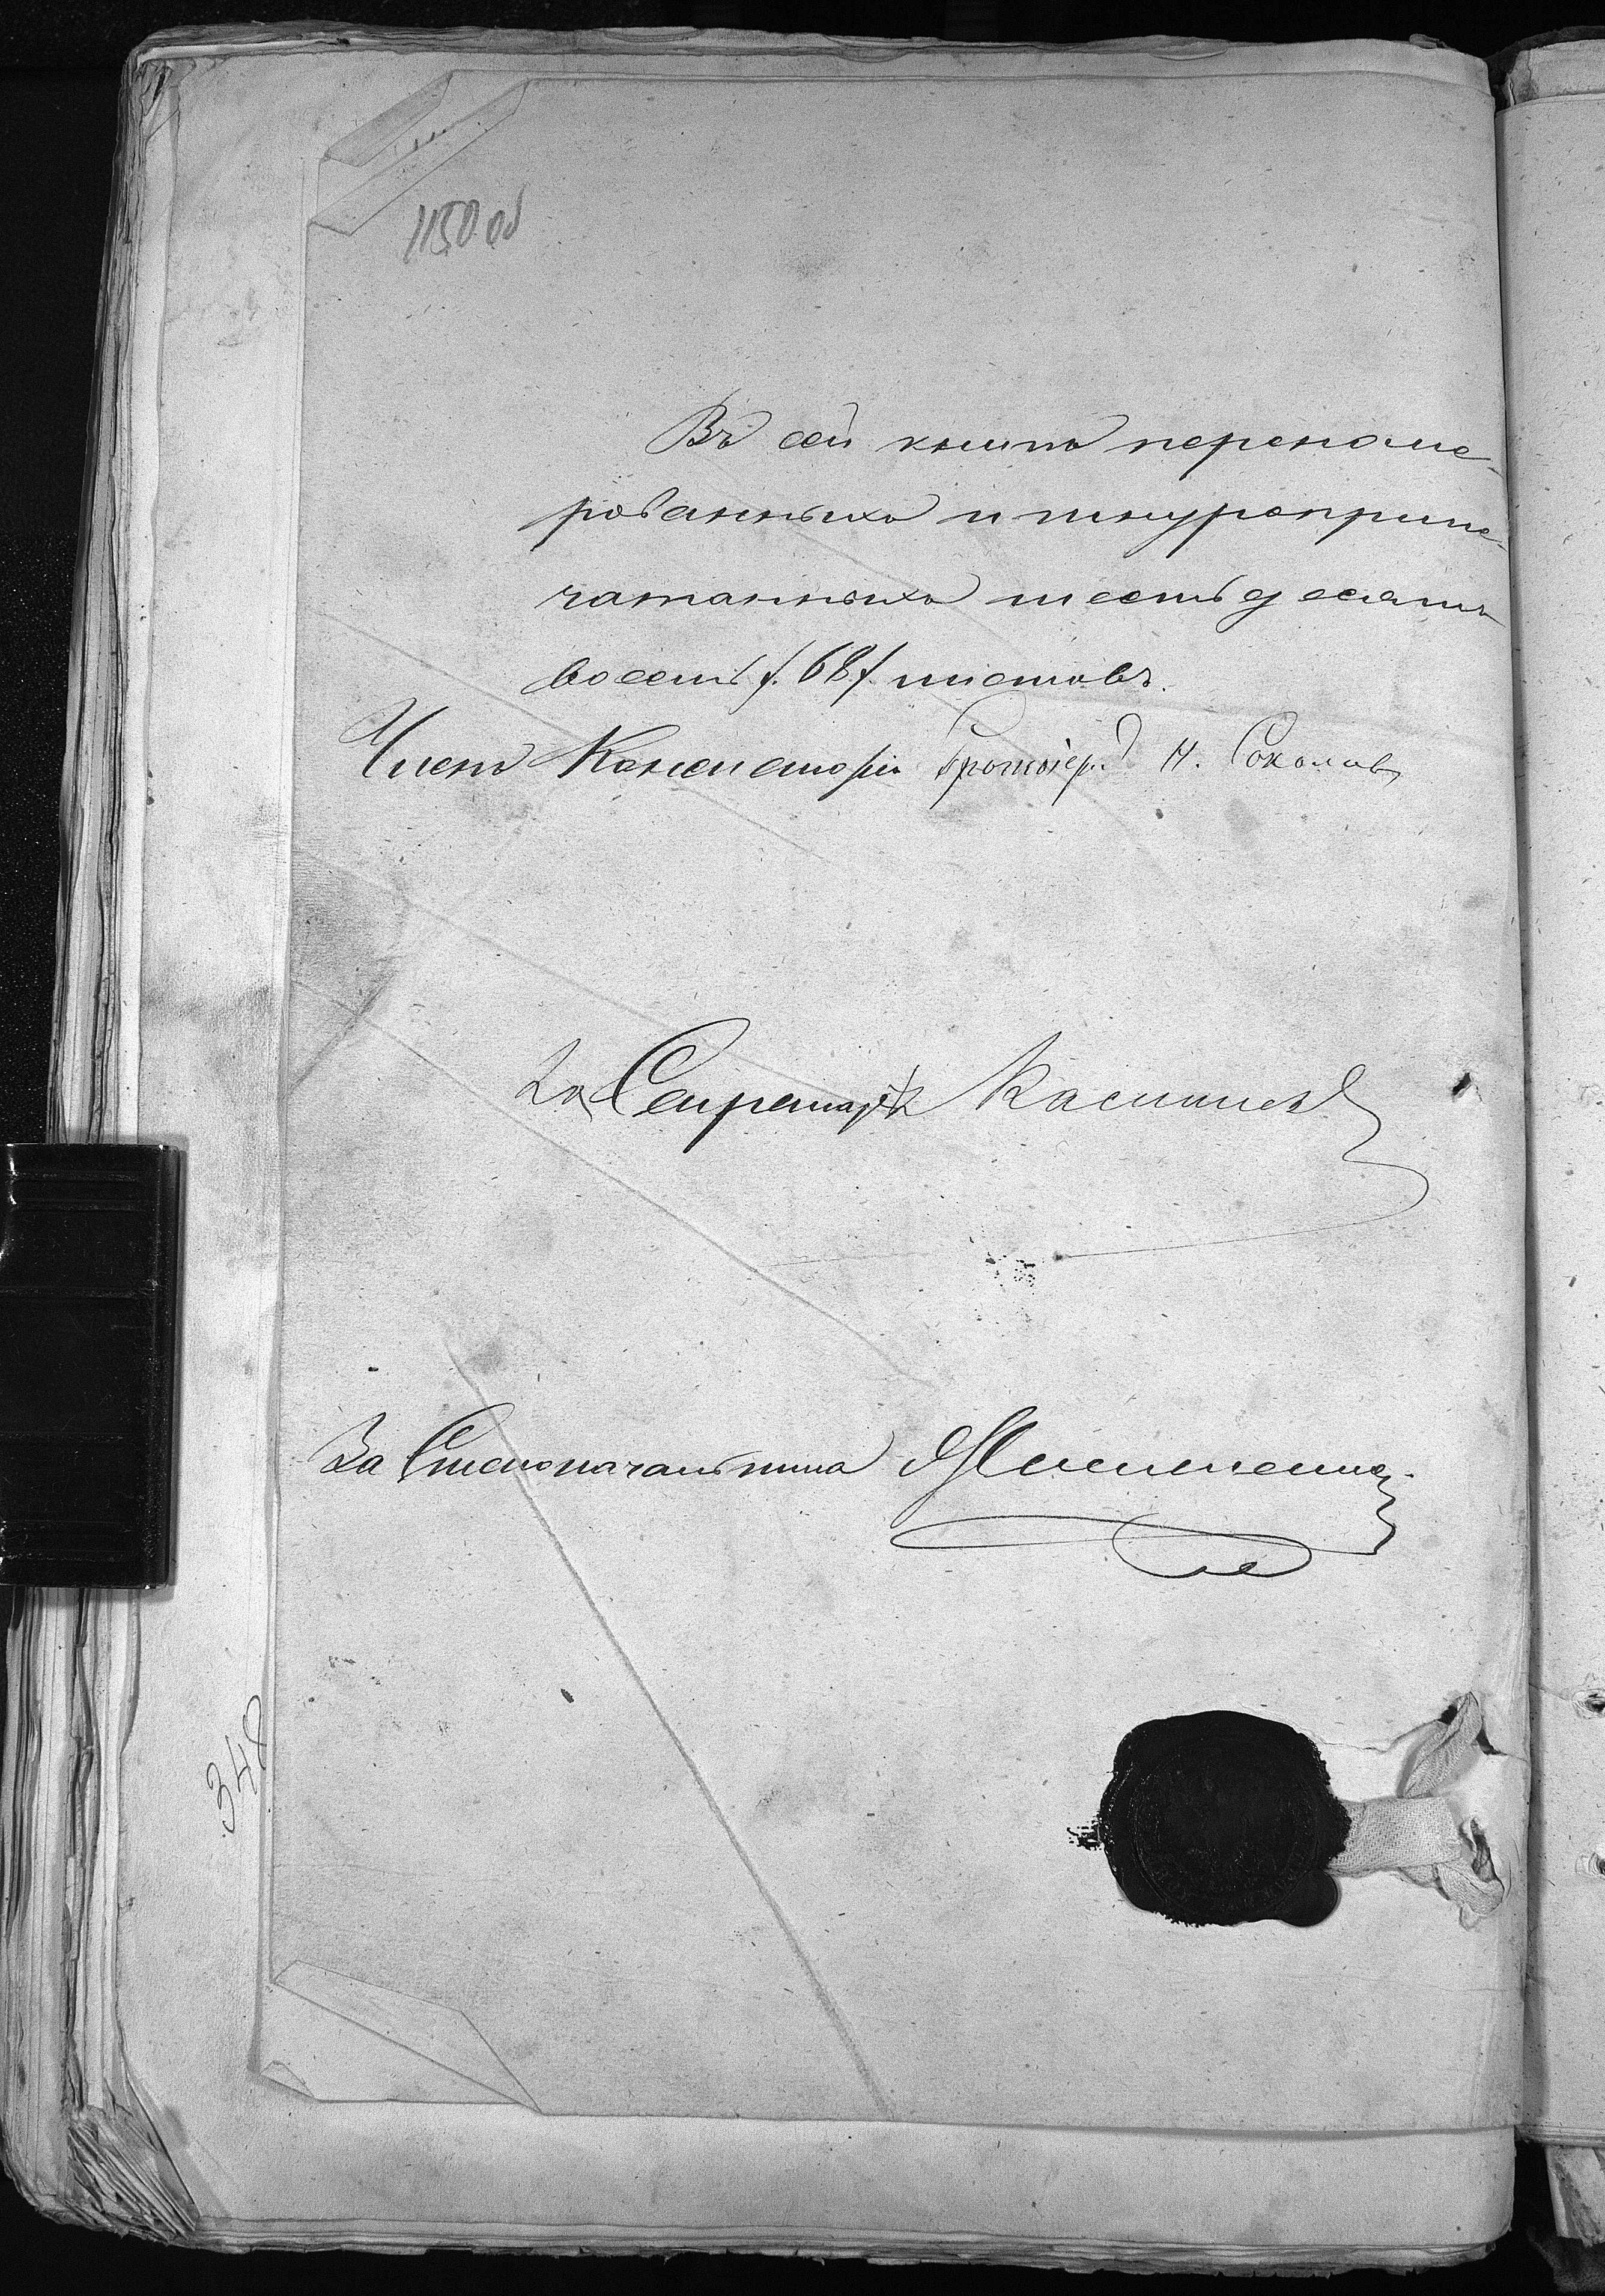 1150 об
Въ сей книгѣ перенуме-
рованныхъ и шнуроприпе-
чатанныхъ шестьдесятъ
восемь /:68:/ листовъ.
Членъ Консисторіи Протоіер. Н. Соколовъ
За Секретаря
За Столоначальника
348